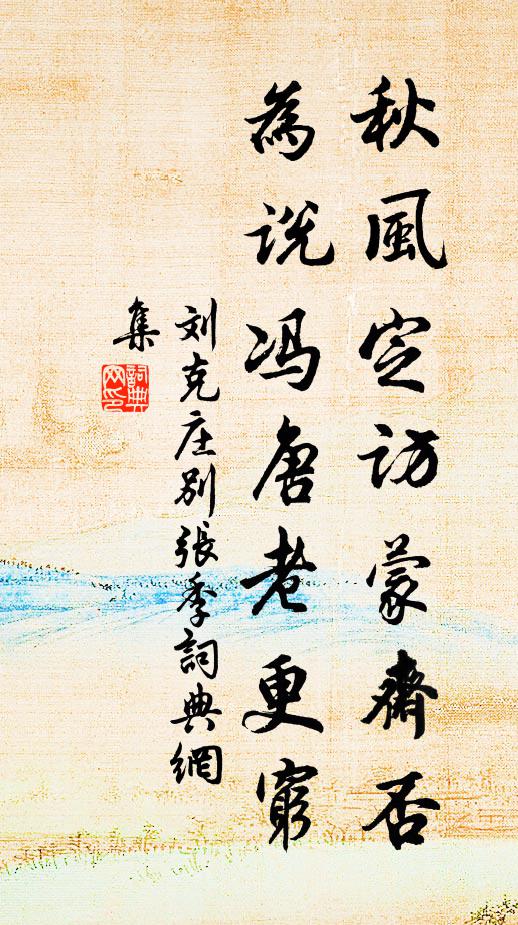 秋風定訪蒙齋否
為说冯唐老更窮
刘克庄别張季詞典網
集
詞典
网印